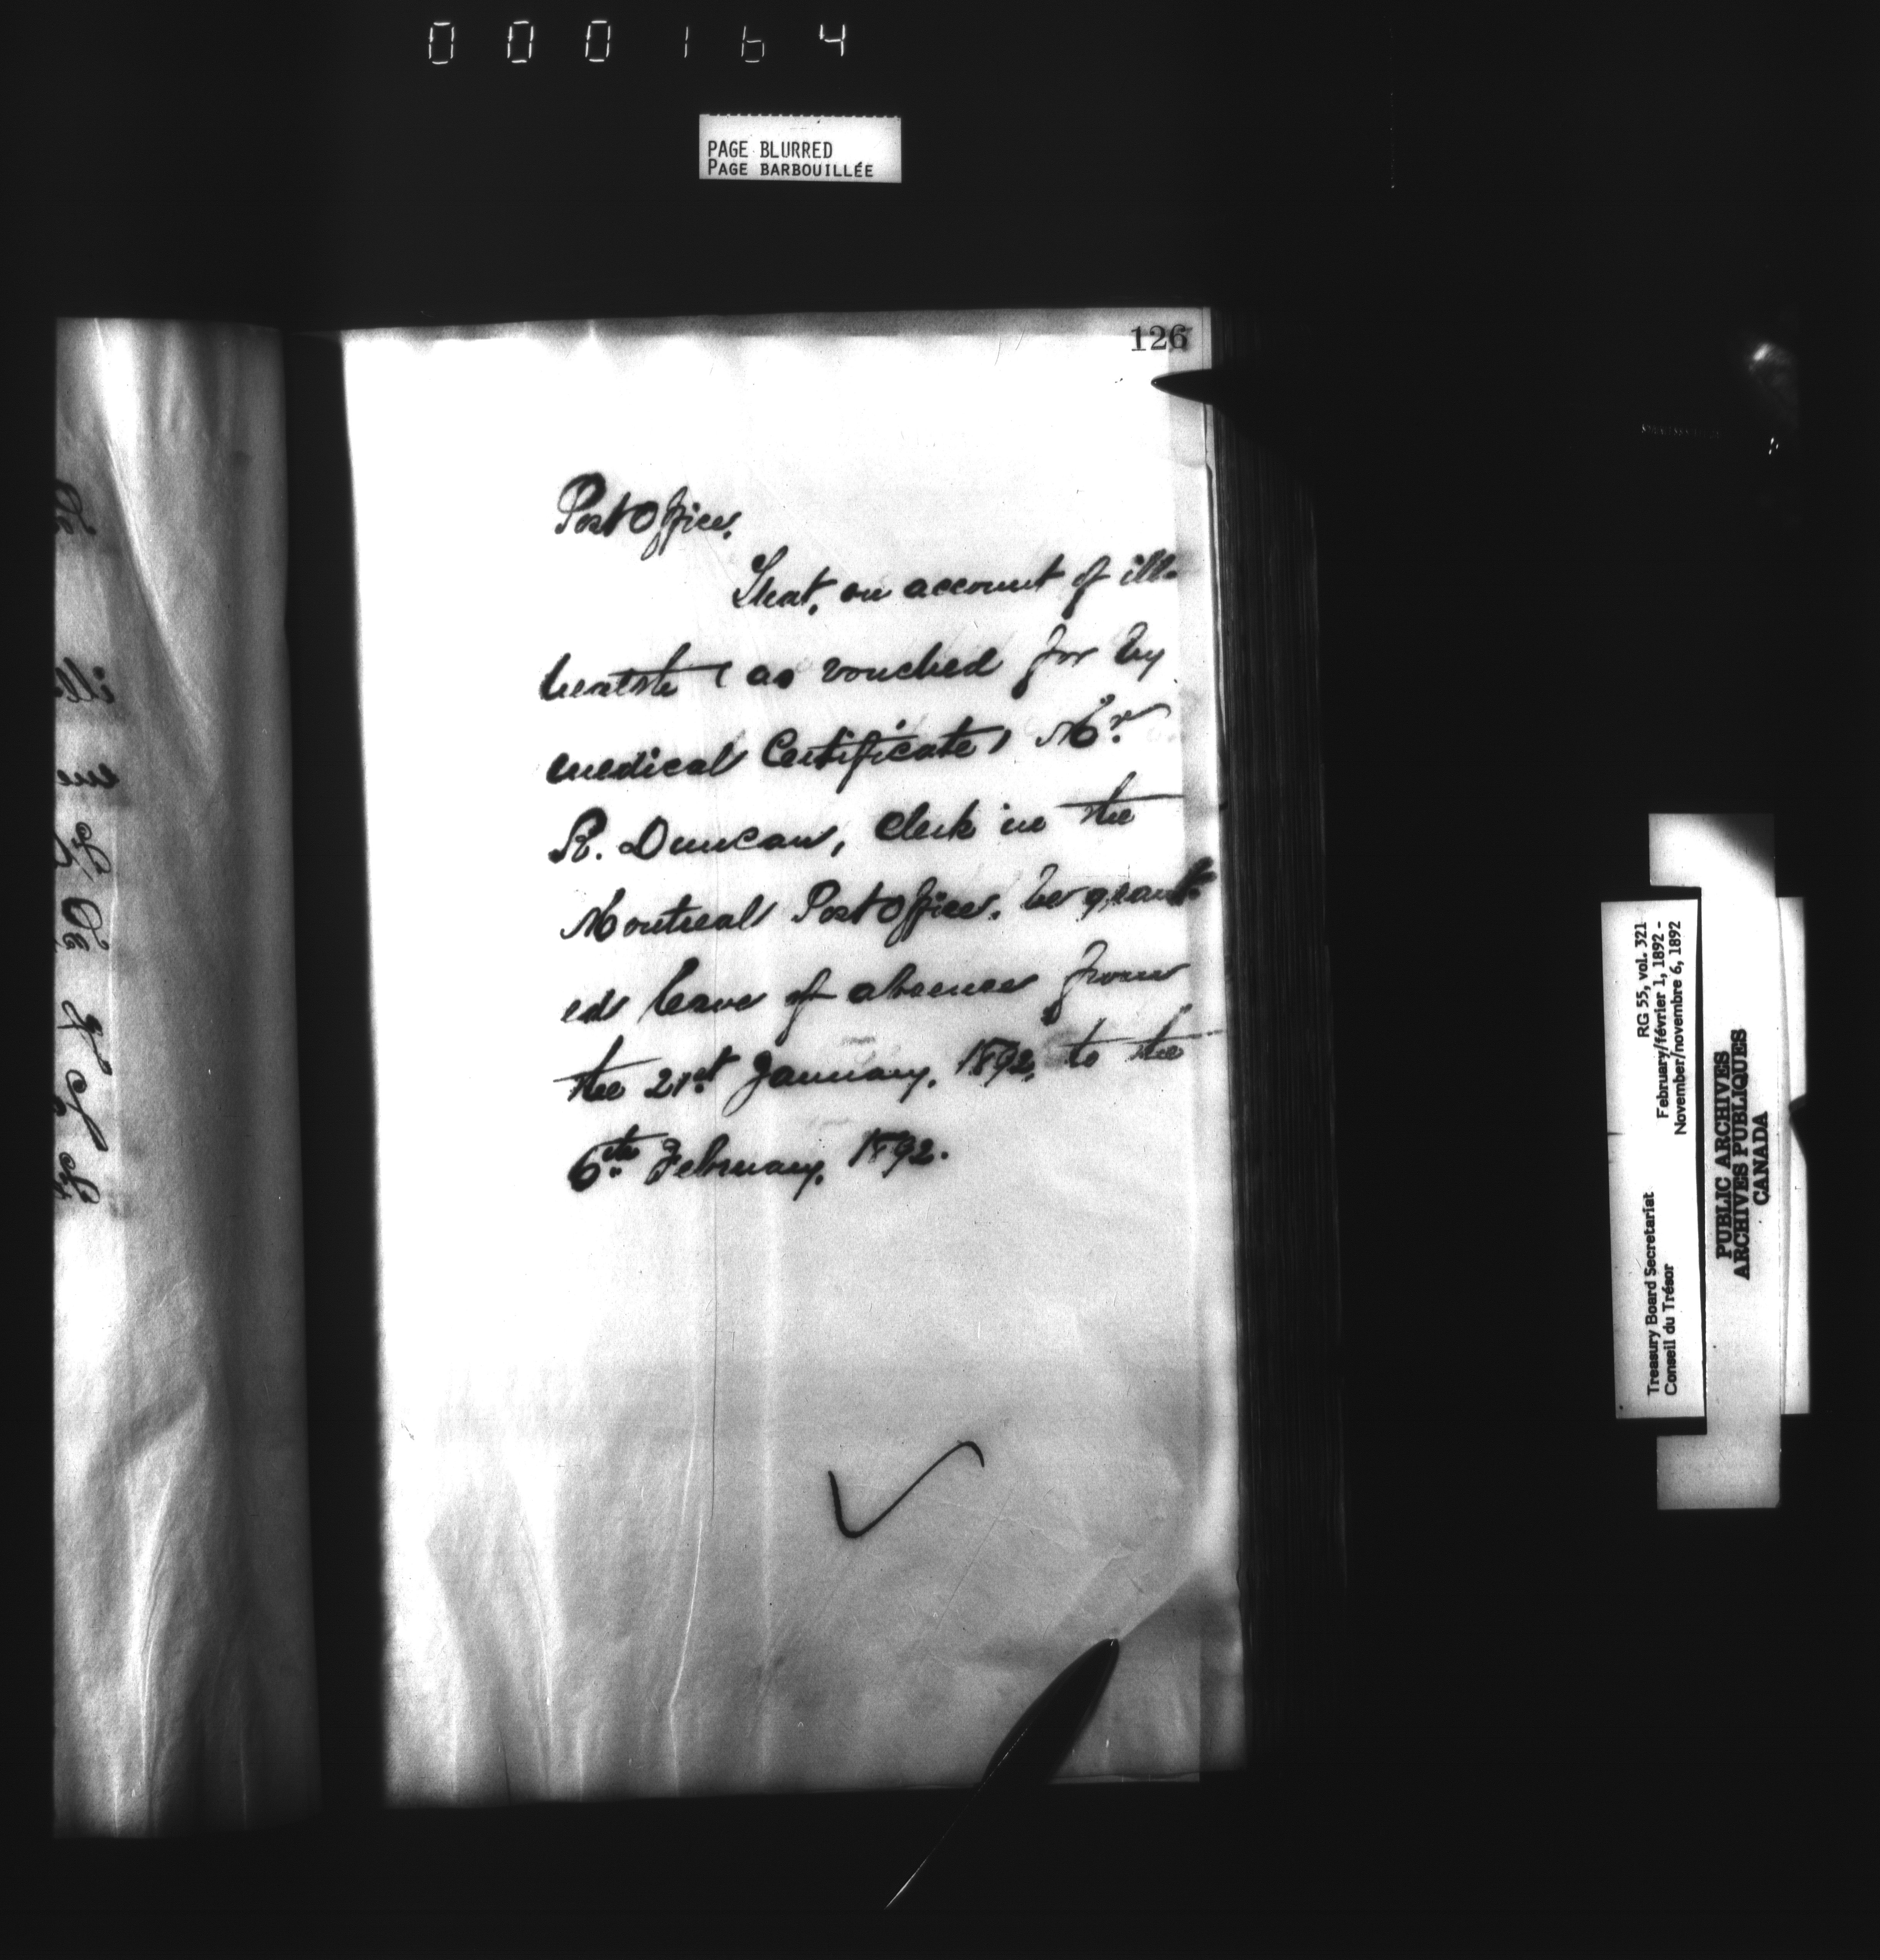 000164
PAGE BLURRED
PAGE BARBOUILLÉE
126
Post Office.
That, on account of ill-
health (as vouched for by
medical Certificate) Mr.
R. Duncan, Clerk in the
Montreal Post Office, be grant-
ed leave of absence from
the 21st January, 1892, to the
6th February, 1892.
RG 55, vol. 321
February/février 1, 1892 -
November/novembre 6, 1892
Treasury Board Secretariat
Conseil du Trésor
PUBLIC ARCHIVES
ARCHIVES PUBLIQUES
CANADA